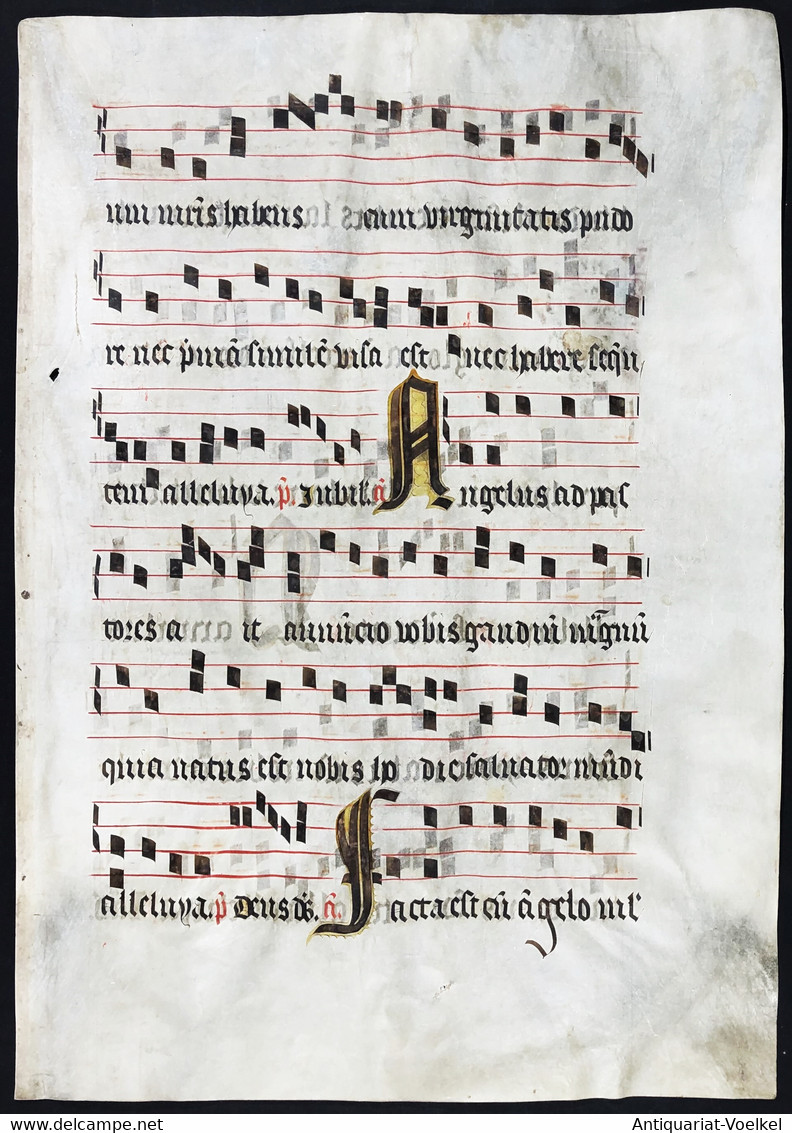 um mr̃is habens cum virginitatis pudo
re nec p̃mã similẽ visa est nec habere sequ
tem alleluya. p̃. Jubil'. ã Angelus ad pas
tores a it annũcio vobis gaudiũ mãgnũ
quia natus est nobis ho die saluator mũdi
alleluya. p̃ Deus d's. ã. Facta est cũ ãgelo ml'
Antiquariat-Voelkel